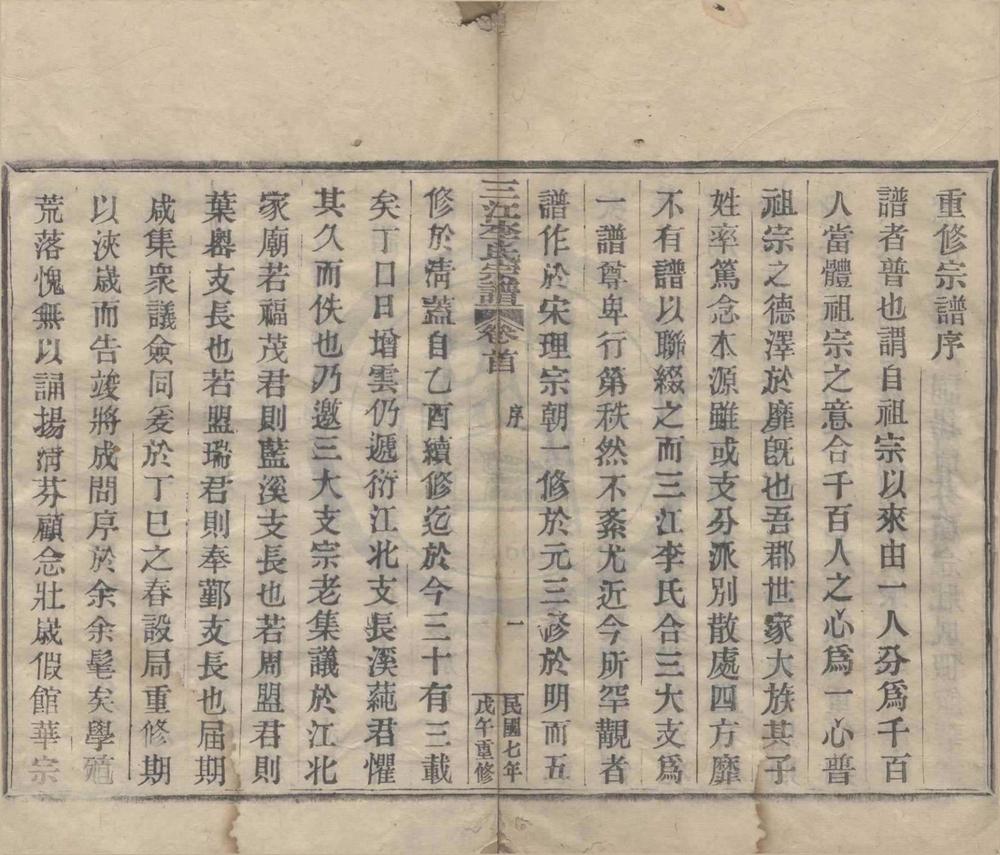 重修宗譜序
譜者普也謂自祖宗以來由一人分爲千百
人當體祖宗之意合千百人之心爲一心普
祖宗之德澤於靡旣也吾郡世家大族其子
姓率篤念本源雖或支分派別散處四方靡
不有譜以聯綴之而三江李氏合三大支爲
一譜尊卑行第秩然不紊尤近今所罕覯者
譜作於宋理宗朝一修於元三修於明而五
三江李氏宗譜 卷首 序 一 民國七年戊午重修
修於淸蓋自乙酉續修迄於今三十有三載
矣丁口日增雲仍遞衍江北支長溪蒓君懼
其久而佚也乃邀三大支宗老集議於江北
家廟若福茂君則藍溪支長也若周盟君則
葉嶴支長也若盟瑞君則奉鄞支長也届期
咸集衆議僉同爰於丁巳之春設局重修期
以浹歲而告竣將成問序於余余髦矣學殖
荒落愧無以誦揚淸芬顧念壯歲假館華宗